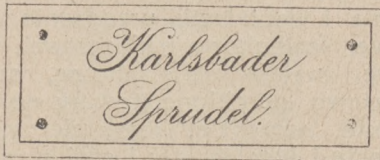 Karlsbader
Sprudel.